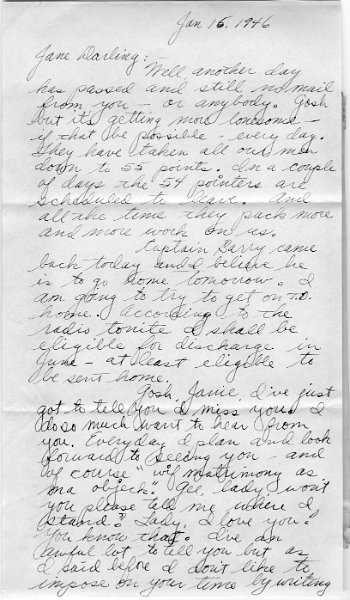 Jan 16, 1946
Jane Darling:
Well another day
has passed and still no mail
from you - or anybody. Gosh
but it's getting more lonesome -
if that be possible - every day.
They have taken all our men
down to 55 points. In a couple
of days the 54 pointers are
scheduled to leave. And
all the time they pack more
and more work on us.
Captain Garry came
back today and I believe he
is to go home tomorrow. I
am going to try to get on T.D.
home. According to the
radio tonite I shall be
eligible for discharge in
June - at least eligible to
be sent home.
Gosh, Janie, I've just
got to tell you I miss you. I
do so much want to hear from
you. Everyday I plan and look
forward to seeing you - and
of course "wif matrimony as
ma object." Gee, lady, won't
you please tell me where I
stand? "Lady, I love you."
You know that. I've an
awful lot to tell you but as
I said before I don't like to
impose on your time by writing